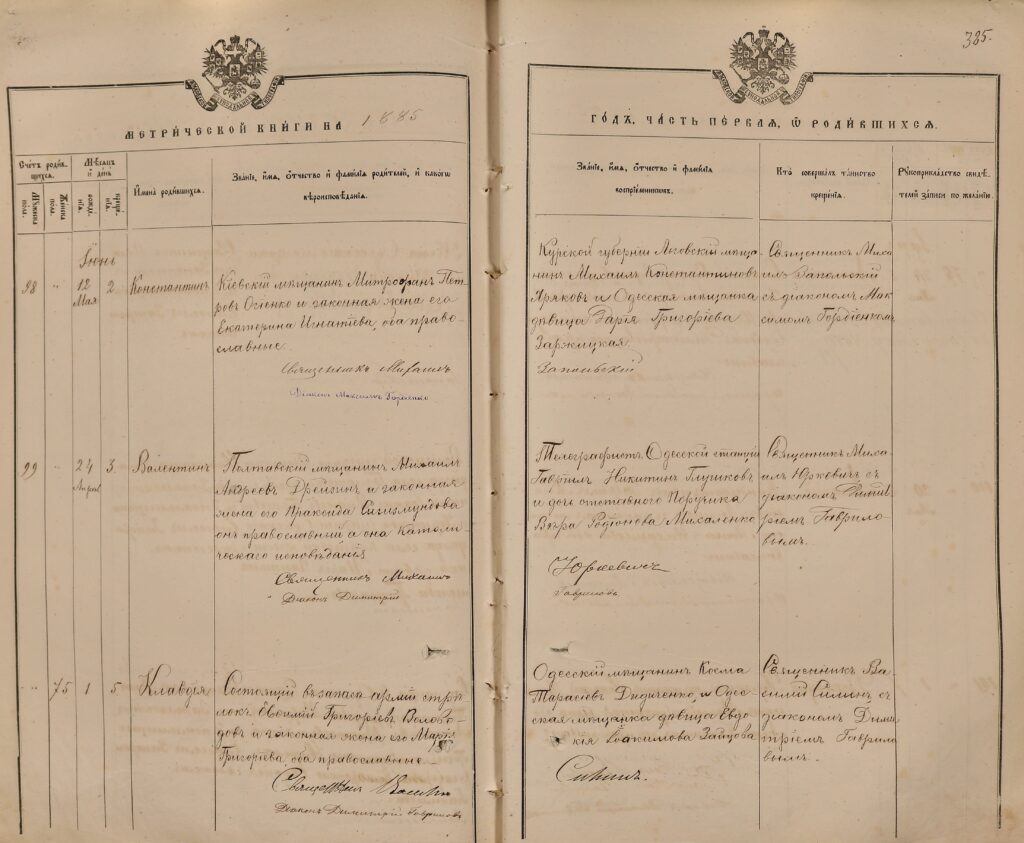 385.
МЕТРИЧЕСКОЙ КНИГИ НА 1885
ГОДЪ, ЧАСТЬ ПЕРВАЯ, Ѡ РОДИВШИХСЯ.
Счетъ родив
шихся.
Мужеска
пол.
Женска
пол.
Мѣсяцъ
и день
рожде
нія.
креще
нія.
Имена родившихся.
Званіе, имя, отчество и фамилія родителей, и какого
вѣроисповѣданія.
Званіе, имя, отчество и фамилія
воспріемниковъ.
Кто совершалъ таинство
крещенія.
Рукоприкладство свидѣ
телей записи по желанію.
Іюнь
98 " 12 2 Константинъ
Мая
Кіевскій мѣщанинъ Митрофанъ Пет
ровъ Огіенко и законная жена его
Екатерина Игнатіева, оба право
славные.
Священникъ Михаилъ
Діаконъ Максимъ Гордіенко
Курской губерніи Льговскій мѣща-
нинъ Михаилъ Константиновъ
и Одесская мѣщанка
дѣвица Дарія Григоріева
Заржицкая.
Запольскій
Священникъ Миха
илъ Запольскій
съ діакономъ Мак
симомъ Гордіенкомъ
99 " 24 3 Валентинъ
Апрѣл
Полтавскій мѣщанинъ Михаилъ
Андреевъ Дрейзинъ и законная
жена его Праксида Сигизмундова
онъ православный а она Католи
ческаго исповѣданія
Священникъ Михаилъ
Діаконъ Димитрій
Телеграфистъ Одесской станціи
Гавріилъ Никитинъ Глушковъ
и дочь отставного Поручика
Вѣра Родіонова Михаленко
Юркевичъ
Гавриловъ
Священникъ Миха
илъ Юркевичъ съ
діакономъ Димит
ріемъ Гаврило
вымъ.
" 75 1 5 Клавдія
Состоящій въ запасѣ арміи стрѣ
локъ Евѳимій Григоріевъ Волово
довъ и законная жена его Марія
Григоріева, оба православные.
Священникъ Василій
Діаконъ Димитрій Гавриловъ
Одесскій мѣщанинъ Косма
Тарасіевъ Дидиченко, и Одес-
ская мѣщанка дѣвица Евдо
кія Іоакимова Зайцова
Священникъ Ва
силій съ
діакономъ Дими
тріемъ Гаврило
вымъ.